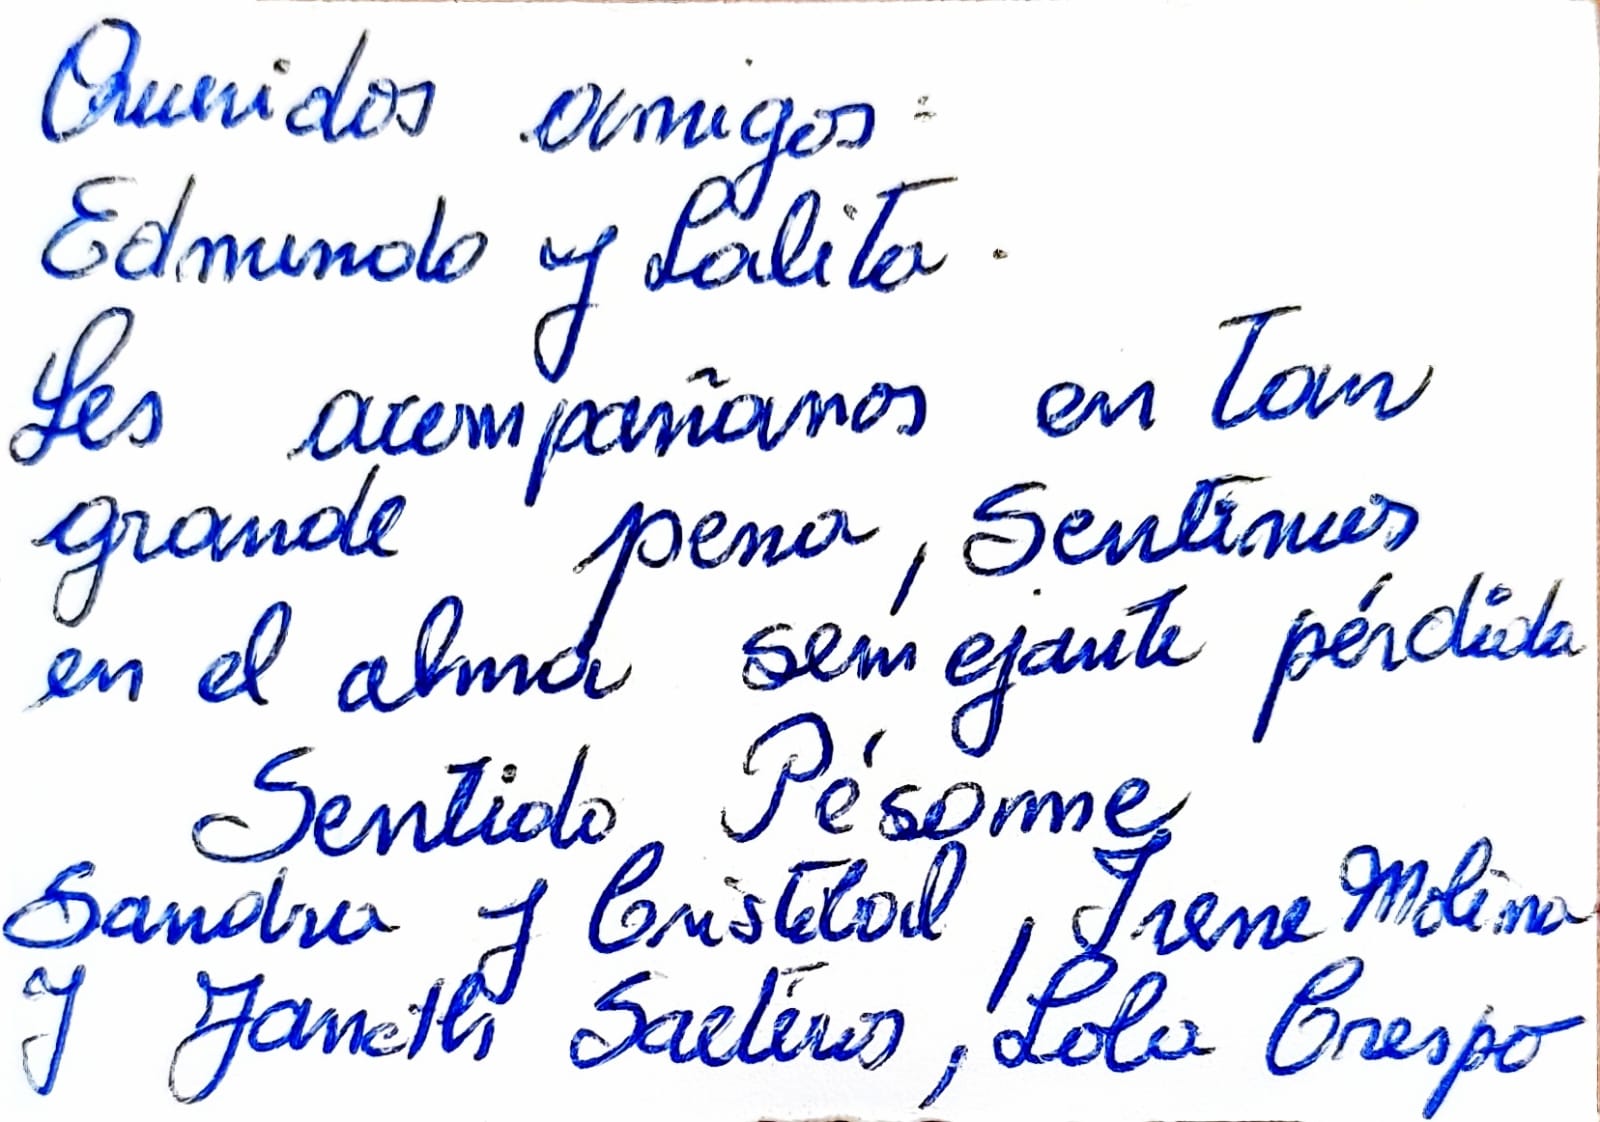 Queridos amigos:
Edmundo y Lalita.
Les acompañamos en tan
grande pena, Sentimos
en el alma semejante pérdida
Sentido Pésame
Sandra y Cristóbal, Irene Molina
Y Janeth Saeteros, Lola Crespo